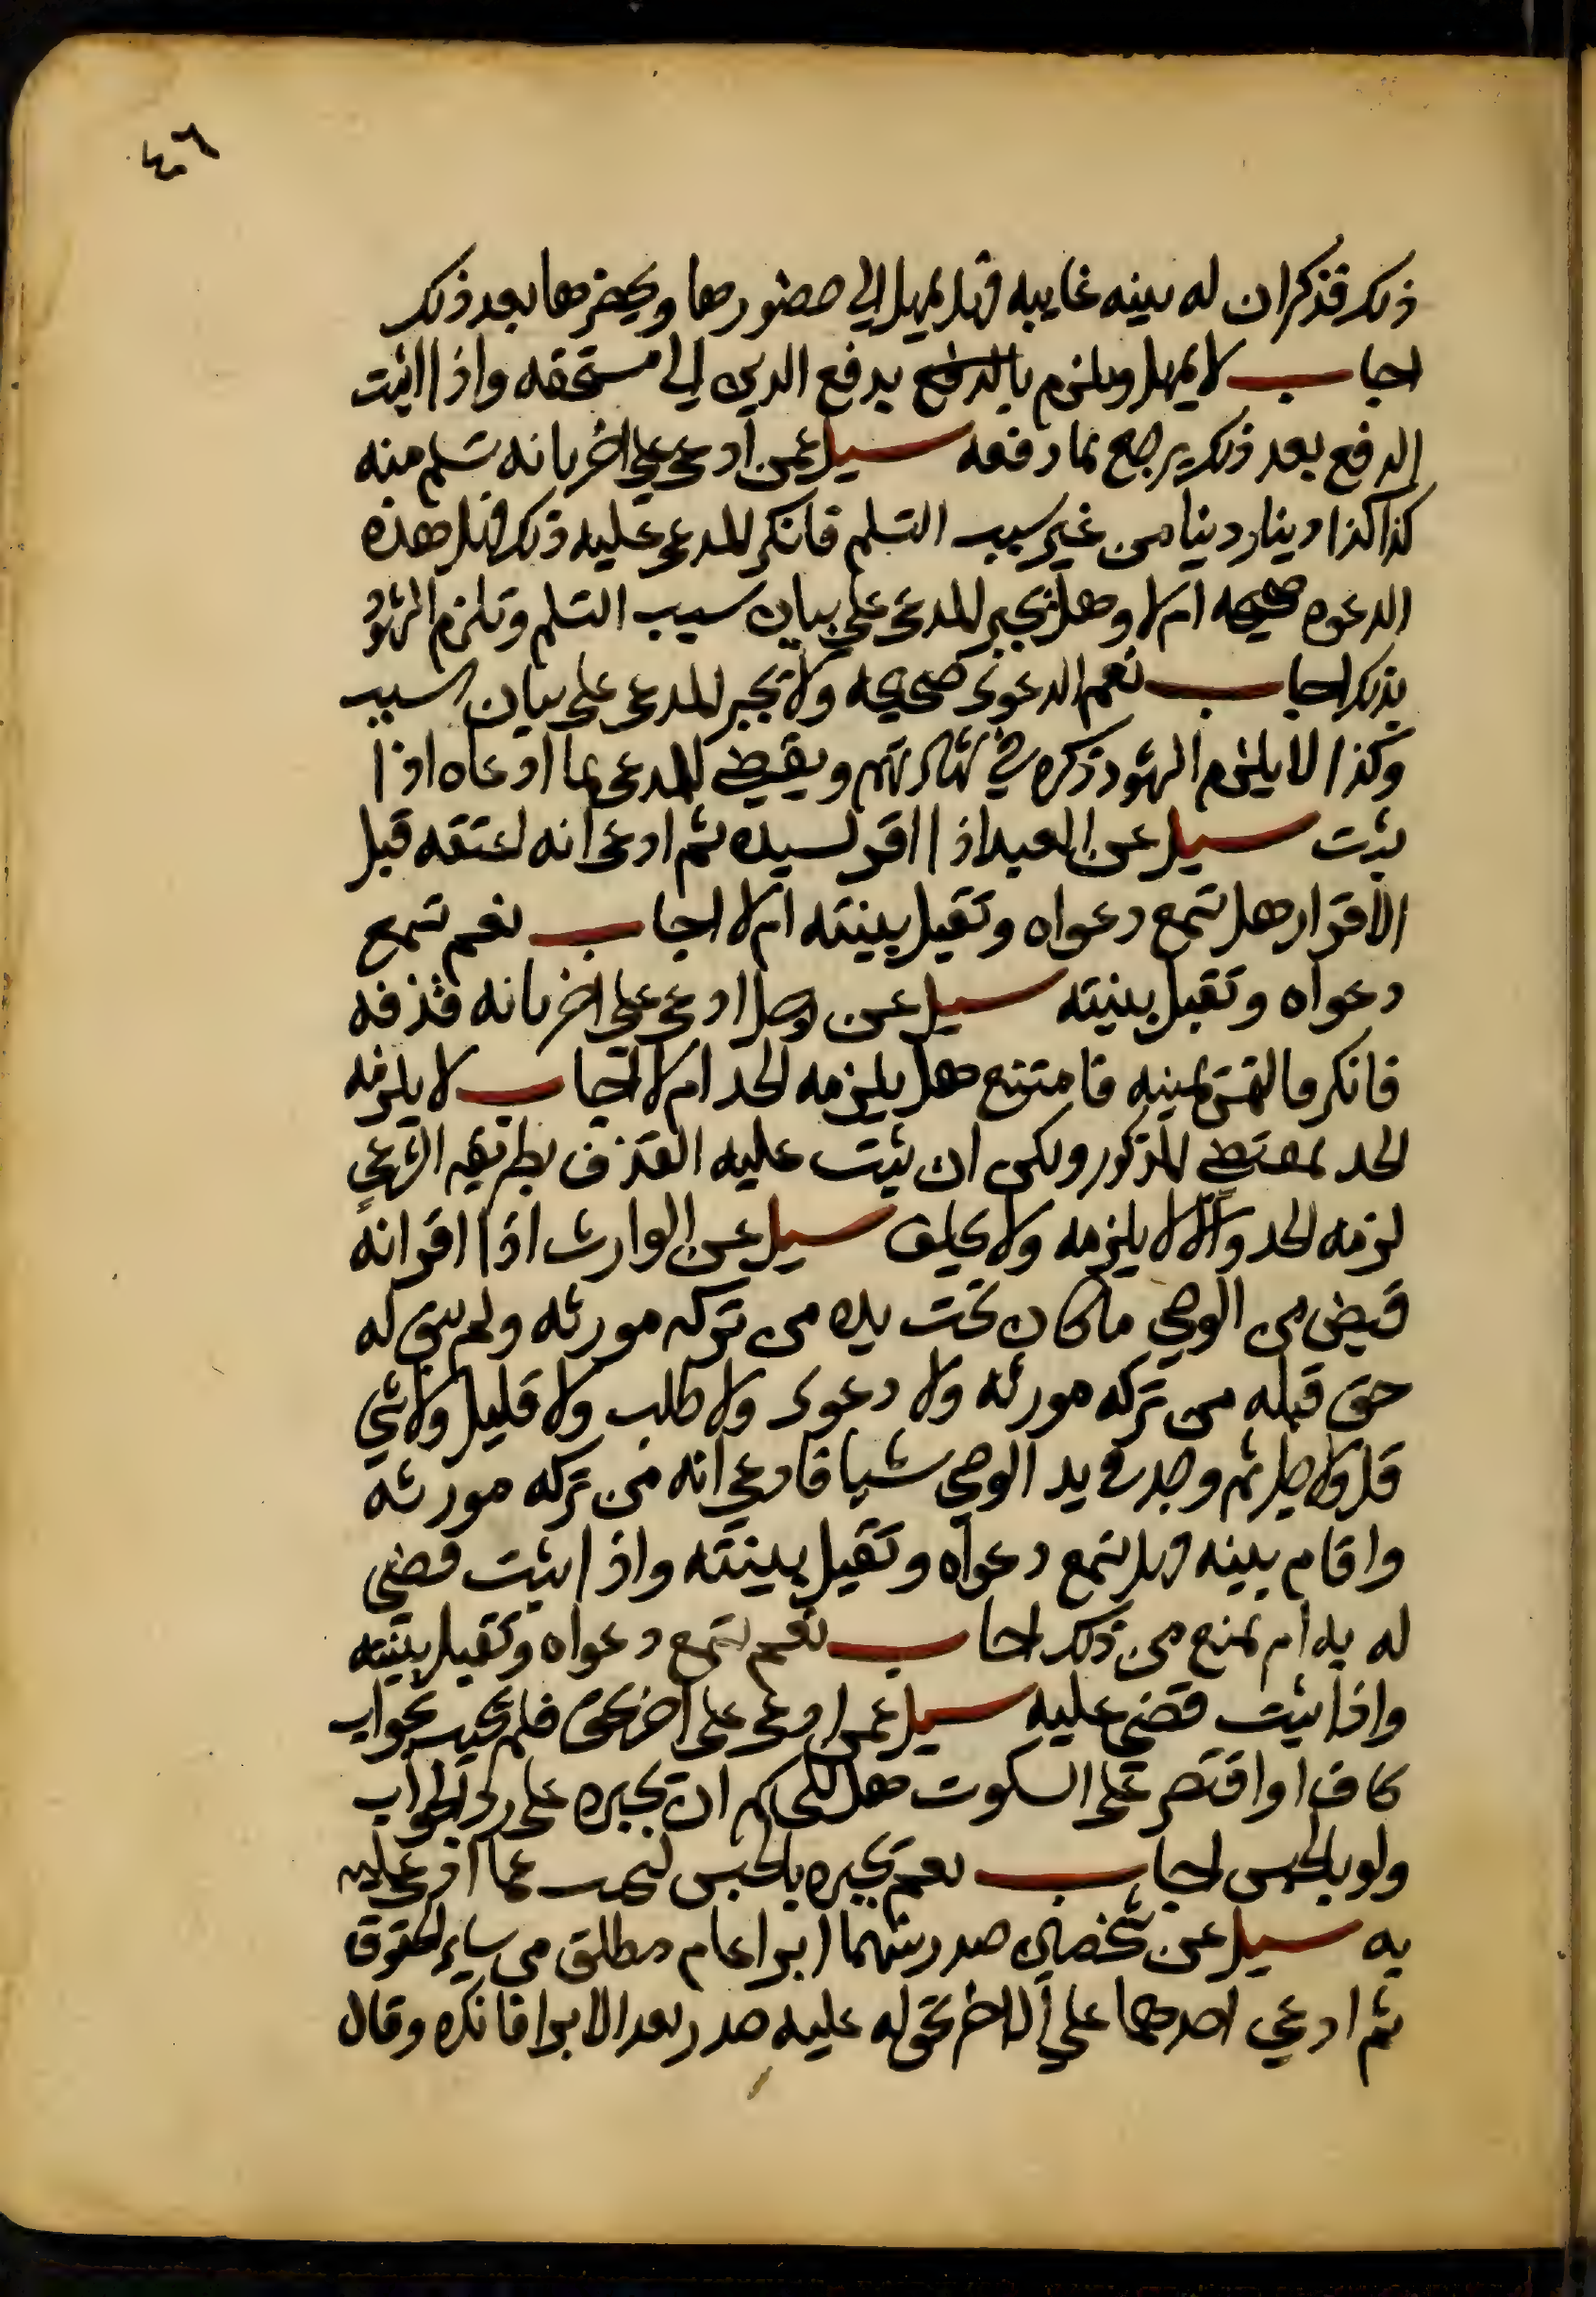 ٤٠٦
ذلك فذكر ان له بينه غايبه فهل يمهل الي حضورها ويحضرها بعد ذلك
اجاب لا يمهل ويلزم بالدفع يدفع الدين الي مستحقه واذا اثبت
الدفع بعد ذلك يرجع بما دفعه سيل عمن ادعي علي اخر بانه تسلم منه
كذا كذا دينار دينا من غير سبب التسلم فانكر المدعي عليه ذلك فهل هذه
الدعوه صحيحه ام لا وهل يجبر المدعي علي بيان سبب التسلم وتلزم الشهود
بذلك اجاب نعم الدعوي صحيحه ولا يجبر المدعي علي بيان السبب
وكذا لا يلزم الشهود ذكره في شهادتهم ويقضي للمدعي بما ادعاه اذا
ثبت سيل عن العبد اذا اقر لسيده ثم ادعي انه اعتقه قبل
الاقرار هل تسمع دعواه وتقبل بينته ام لا اجاب نعم تسمع
دعواه وتقبل بينته سيل عن رجل ادعي علي اخر بانه قذفه
فانكر فالتمس يمينه فامتنع هل يلزمه الحد ام لا اجاب لا يلزمه
الحد بمقتضي المذكور ولكن ان ثبت عليه القذف بطريقه الشرعي
لزمه الحد والا لا يلزمه ولا يحلف سيل عن الوارث اذا اقر انه
قبض من الوصي ما كان تحت يده من تركه مورثه ولم يبق له
حق قبله من تركه مورثه ولا دعوي ولا طلب ولا قليل ولا شي
قل ولا جل ثم وجد في يد الوصي شيا فادعي انه من تركه مورثه
واقام بينه فهل تسمع دعواه وتقبل بينته واذا ثبت قضي
له به ام يمنع من ذلك اجاب نعم تسمع دعواه وتقبل بينته
واذا ثبت قضي عليه سيل عمن ادعي علي اخر بحق فلم يجب بجواب
كاف او اقتصر علي السكوت هل للحاكم ان يجبره علي رد الجواب
ولو بالحبس اجاب نعم يجبره بالحبس ليجيب عما ادعي عليه
به سيل عن شخصان صدر بينهما ابرا عام مطلق من ساير الحقوق
ثم ادعي احدهما علي الاخر بحق له عليه صدر بعد الابرا فانكره وقال